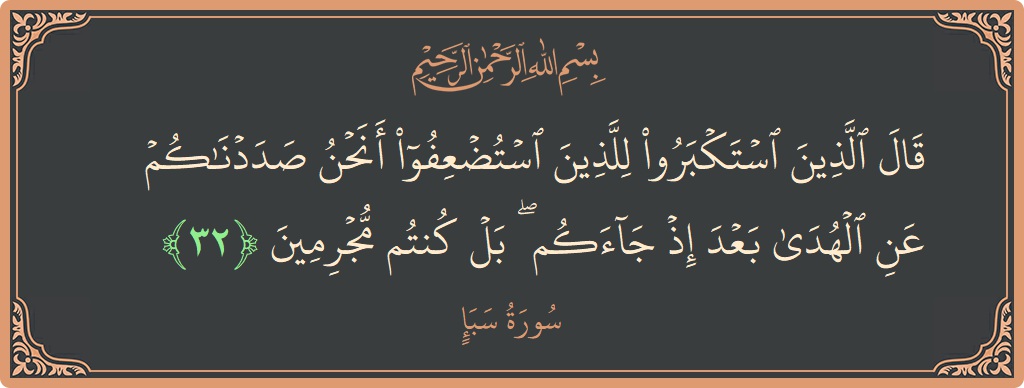 بِسْمِ اللهِ الرَّحْمٰنِ الرَّحِيْمِ
قَالَ ٱلَّذِينَ ٱسۡتَكۡبَرُواْ لِلَّذِينَ ٱسۡتُضۡعِفُوٓاْ أَنَحۡنُ صَدَدۡنَٰكُمۡ
عَنِ ٱلۡهُدَىٰ بَعۡدَ إِذۡ جَآءَكُمۖ بَلۡ كُنتُم مُّجۡرِمِينَ ﴿٣٢﴾
سُورَةُ سَبَإٍ